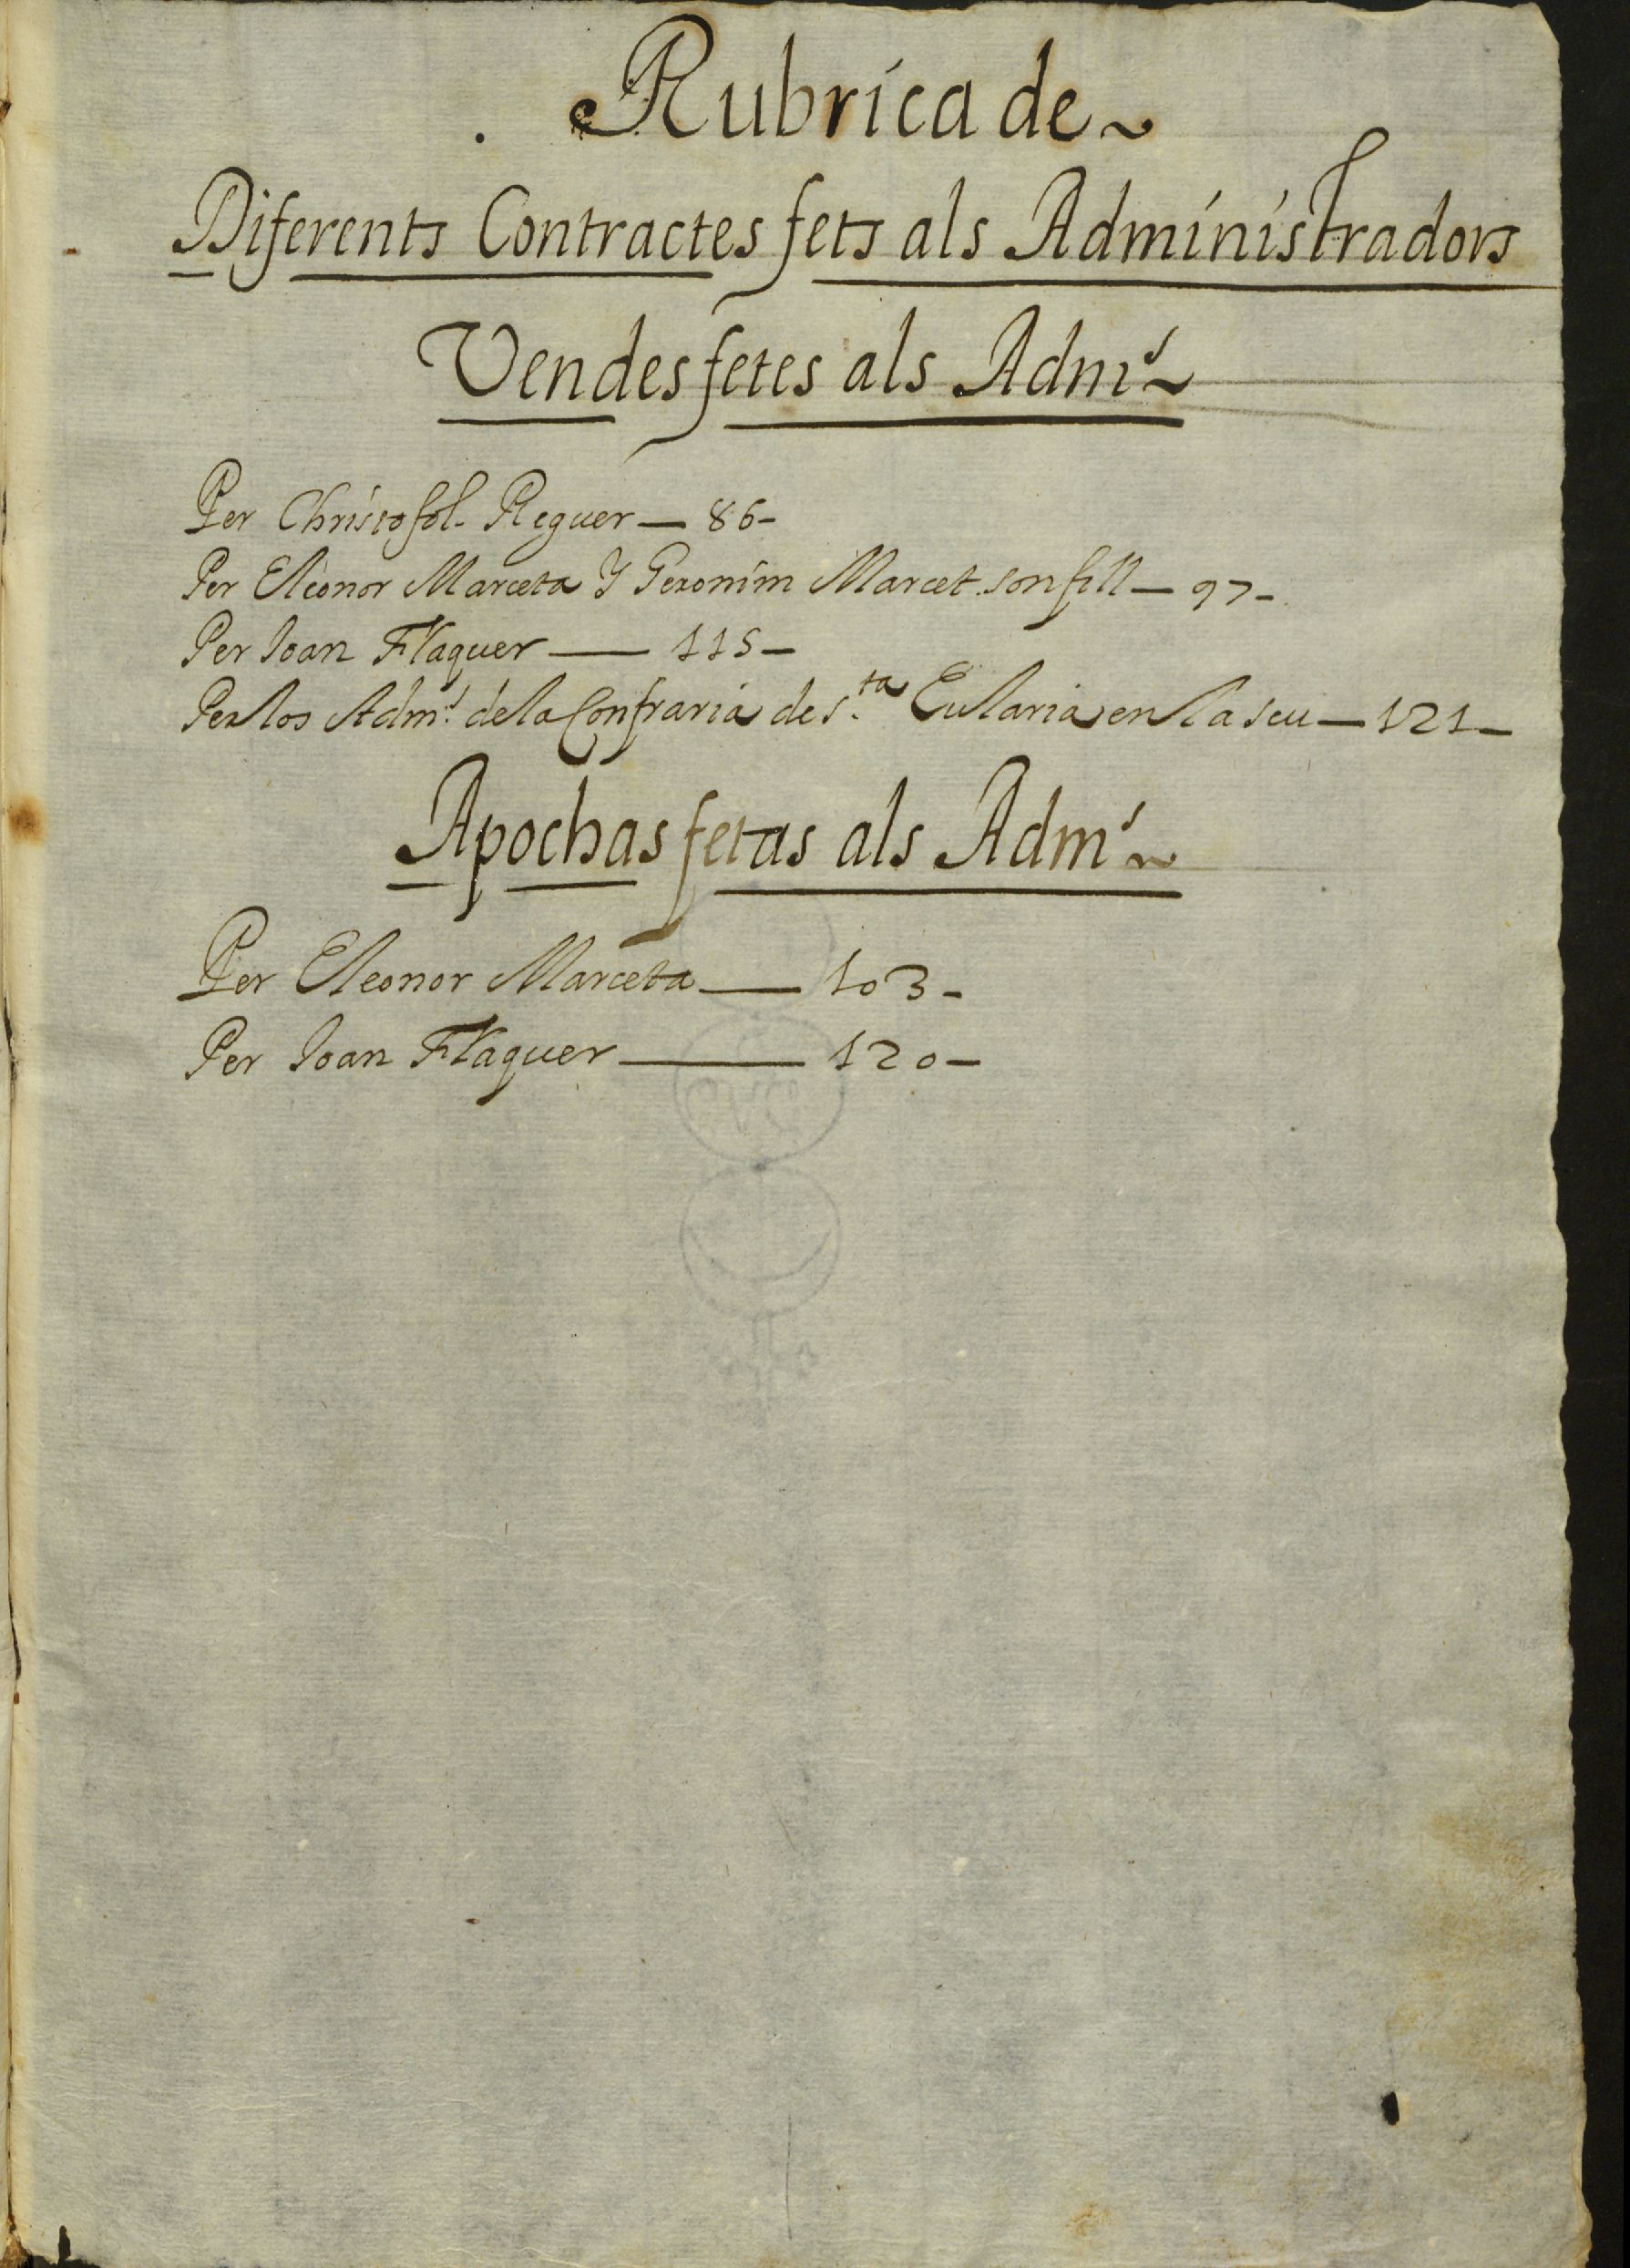 Rubrica de ~
Diferents Contractes fets als Administradors
Vendes fetes als Adm.s ~
Per Christofol Reguer — 86 -
Per Eleonor Marceta Y Geronim Marcet son fill — 97 -
Per Ioan Flaquer — 115 -
Per los Adm.s de la Confraria de s.ta Eularia en la seu — 121 -
Apochas fetas als Adm.s ~
Per Eleonor Marceta — 103 -
Per Ioan Flaquer — 120 -